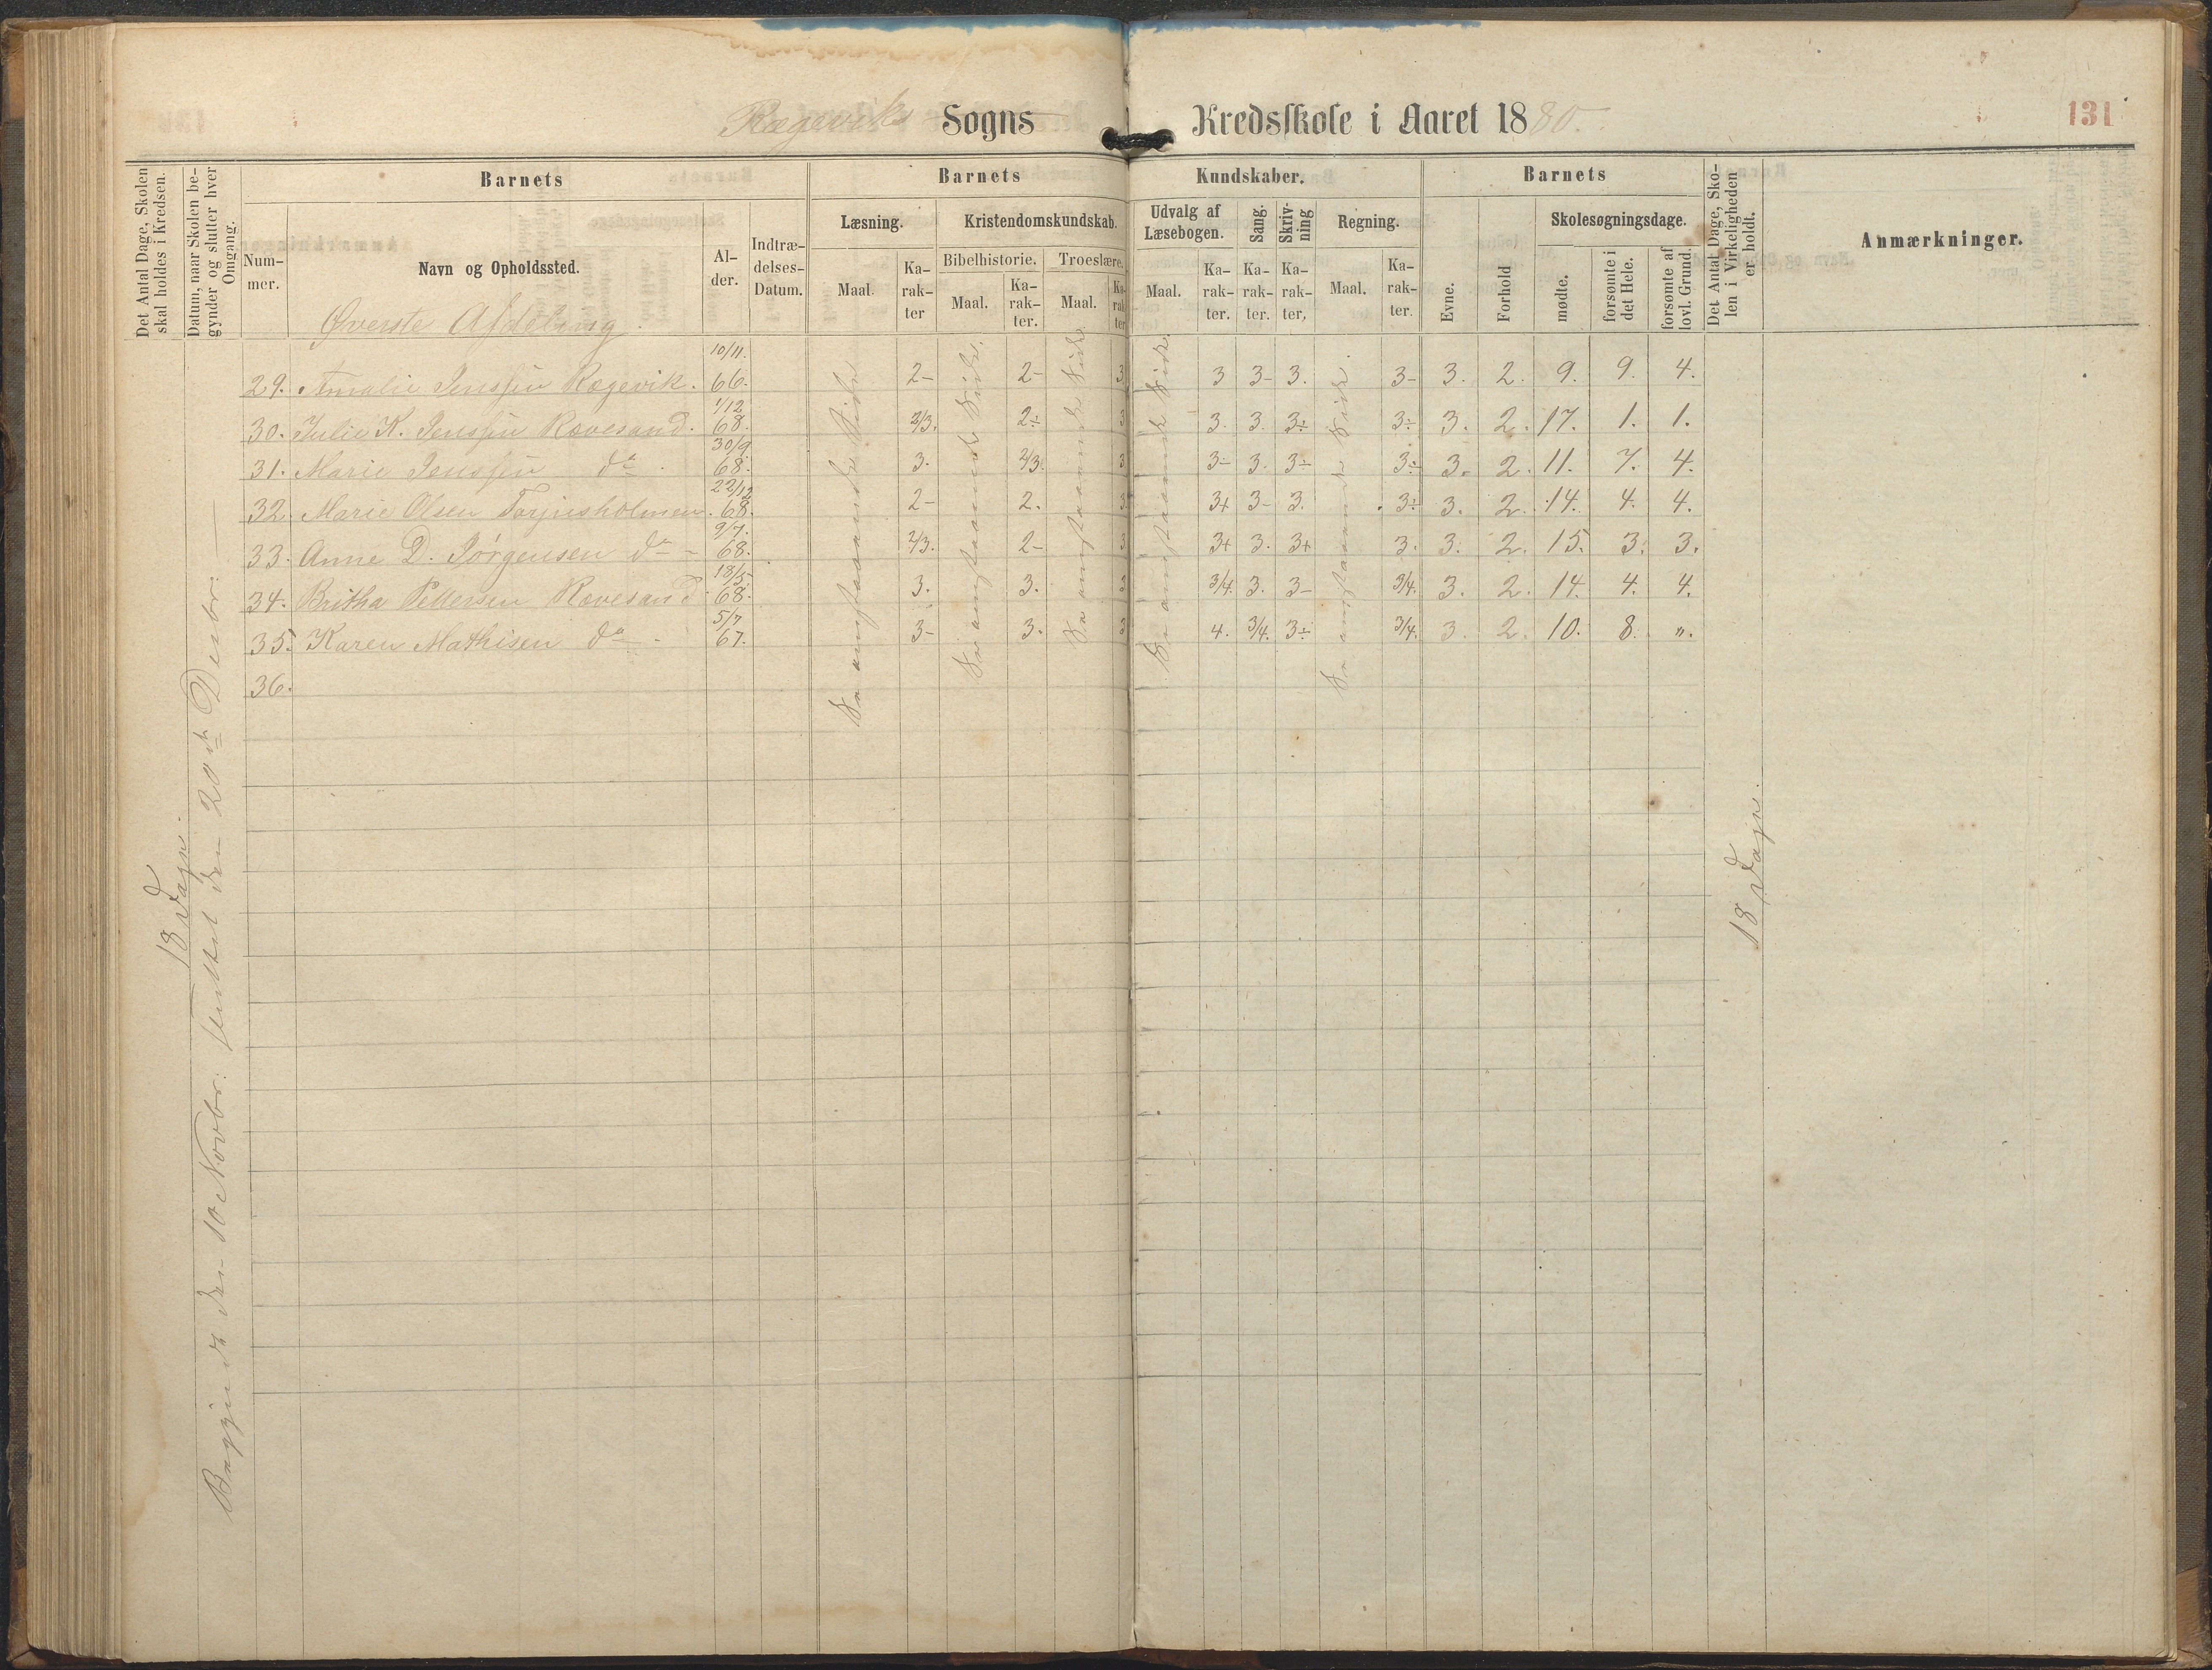 Rægeviks Sogns Kredsskole i Aaret 1880.
131
Det Antal Dage, Skolen skal holdes i Kredsen.
Datum, naar Skolen begynder og slutter hver Omgang.
Barnets
Barnets Kundskaber.
Barnets
Det Antal Dage, Skolen i Virkeligheden er holdt.
Anmærkninger.
Nummer.
Navn og Opholdssted.
Alder.
Indtrædelses-Datum.
Læsning.
Kristendomskundskab.
Udvalg af Læsebogen.
Sang.
Skrivning
Regning.
Evne.
Forhold
Skolesøgningsdage.
Bibelhistorie. Troeslære.
Maal. Karakter Maal. Karakter. Maal. Karakter
Maal. Karakter. Karakter. Karakter, Maal. Karakter.
mødte. forsømte i det Hele. forsømte af lovl. Grund.
Øverste Afdeling.
29. Amalie Jenssen Rægevik. 10/11. 66. 2- 2- 3 3 3- 3. 3- 3. 2. 9. 9. 4.
30. Julie K. Jenssen Rævesand. 1/12 68. 2/3. 2÷ 3 3. 3. 3÷ 3÷ 3. 2. 17. 1. 1.
31. Marie Jenssen do. 30/9. 68. 3. 2/3. 3 3- 3. 3÷ 3÷ 3. 2. 11. 7. 4.
32. Marie Olsen Torjusholmen. 22/12 68. 2- 2. 3 3+ 3- 3. 3÷ 3. 2. 14. 4. 4.
33. Anne D. Jørgensen do - 9/7. 68. 2/3. 2- 3 3+ 3. 3+ 3. 3. 2. 15. 3. 3.
34. Britha Pettersen Rævesand. 18/5. 68. 3. 3. 3 3/4. 3. 3- 3/4. 3. 2. 14. 4. 4.
35. Karen Mathisen do - 5/7 67. 3- 3. 3 4. 3/4. 3÷ 3/4. 3. 2. 10. 8. ".
36.
18 Dage.
Begyndt den 10 Novbr: sluttet den 20de Desbr:
Se omstaaende Side
Se omstaaende Side.
Se omstaaende Side.
Se omstaaende Side.
Se omstaaende Side.
18 Dage.